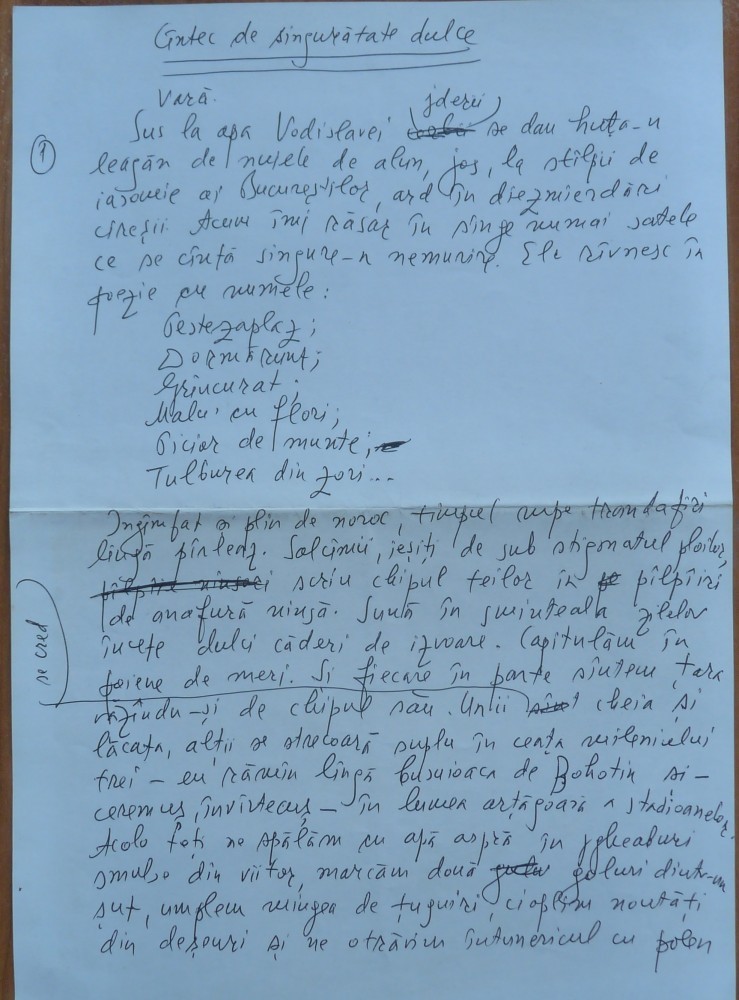 Cîntec de singurătate dulce
Vară.
jderii
1 Sus la apa Vodislavei se dau huța-n
leagăn de nuiele de alun, jos, la stîlpii de
iasomie ai Bucureștilor, ard în dezmierdări
cireșii. Acum îmi răsar în sînge numai satele
ce se cîntă singure-n nemurire. Ele rîvnesc în
poezie cu numele:
Peștezaplaz;
Dormărunt;
Grîncurat;
Malu' cu flori;
Picior de munte;
Tulburea din zori...
Îngîmfat și plin de noroc, timpul rupe trandafiri
lîngă pîrleaz. Salcîmii, ieșiți de sub stigmatul ploilor,
scriu chipul teilor în pîlpîiri
de anafură ninsă. Sună în sminteala zilelor
încete dulci căderi de izvoare. Capitulăm în
poiene de meri. Și fiecare în parte sîntem țara
văzîndu-și de chipul său. Unii cheia și
se cred
lăcata, alții se strecoară suplu în ceața mileniului
trei – eu rămîn lîngă busuioaca de Bohotin și-
ceremuș, învîrtecuș – în lumea arțăgoasă a stadioanelor.
Acolo toți ne spălăm cu apă aspră în jgheaburi
smulse din viitor, marcăm două goluri dintr-un
șut, umplem mingea de țuguiri, cioplim noutăți
din deșeuri și ne otrăvim întunericul cu polen